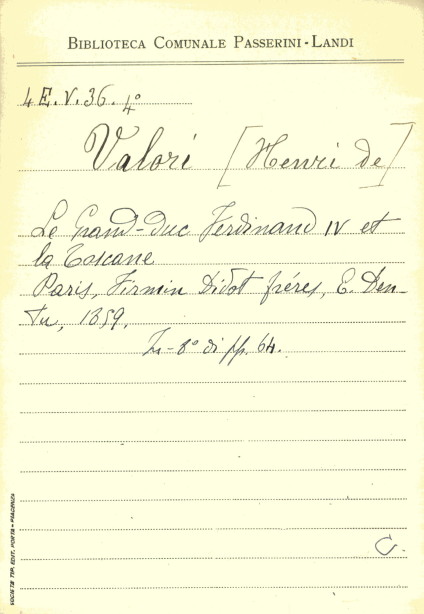 BIBLIOTECA COMUNALE PASSERINI-LANDI
4 E.V.36.4°
Valori [Henri de]
Le Grand-Duc Ferdinand IV et
la Toscane
Paris, Firmin Didot fréres, E. Den-
tu, 1859,
In-8° di pp. 64.
C.
SOCIETÀ TIP. EDIT. PORTA - PIACENZA